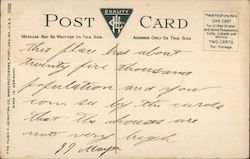 QUALITY
POST CARD
MESSAGE MAY BE WRITTEN ON THIS SIDE
ADDRESS ONLY ON THIS SIDE
Place the Stamp Here
ONE CENT
for United States
and Island Possessions,
Cuba, Canada and
Mexico
TWO CENTS
For Foreign.
THE HUGH C. LEIGHTON CO., MANUFACTURERS, PORTLAND, ME., U.S.A.
this place has about
twenty five thousand
population and you
can see by the cards
that the houses are
not very high